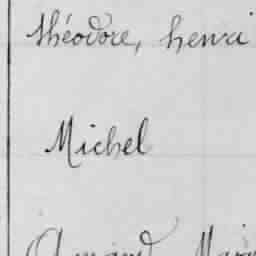 théodore, henri
Michel
Armand